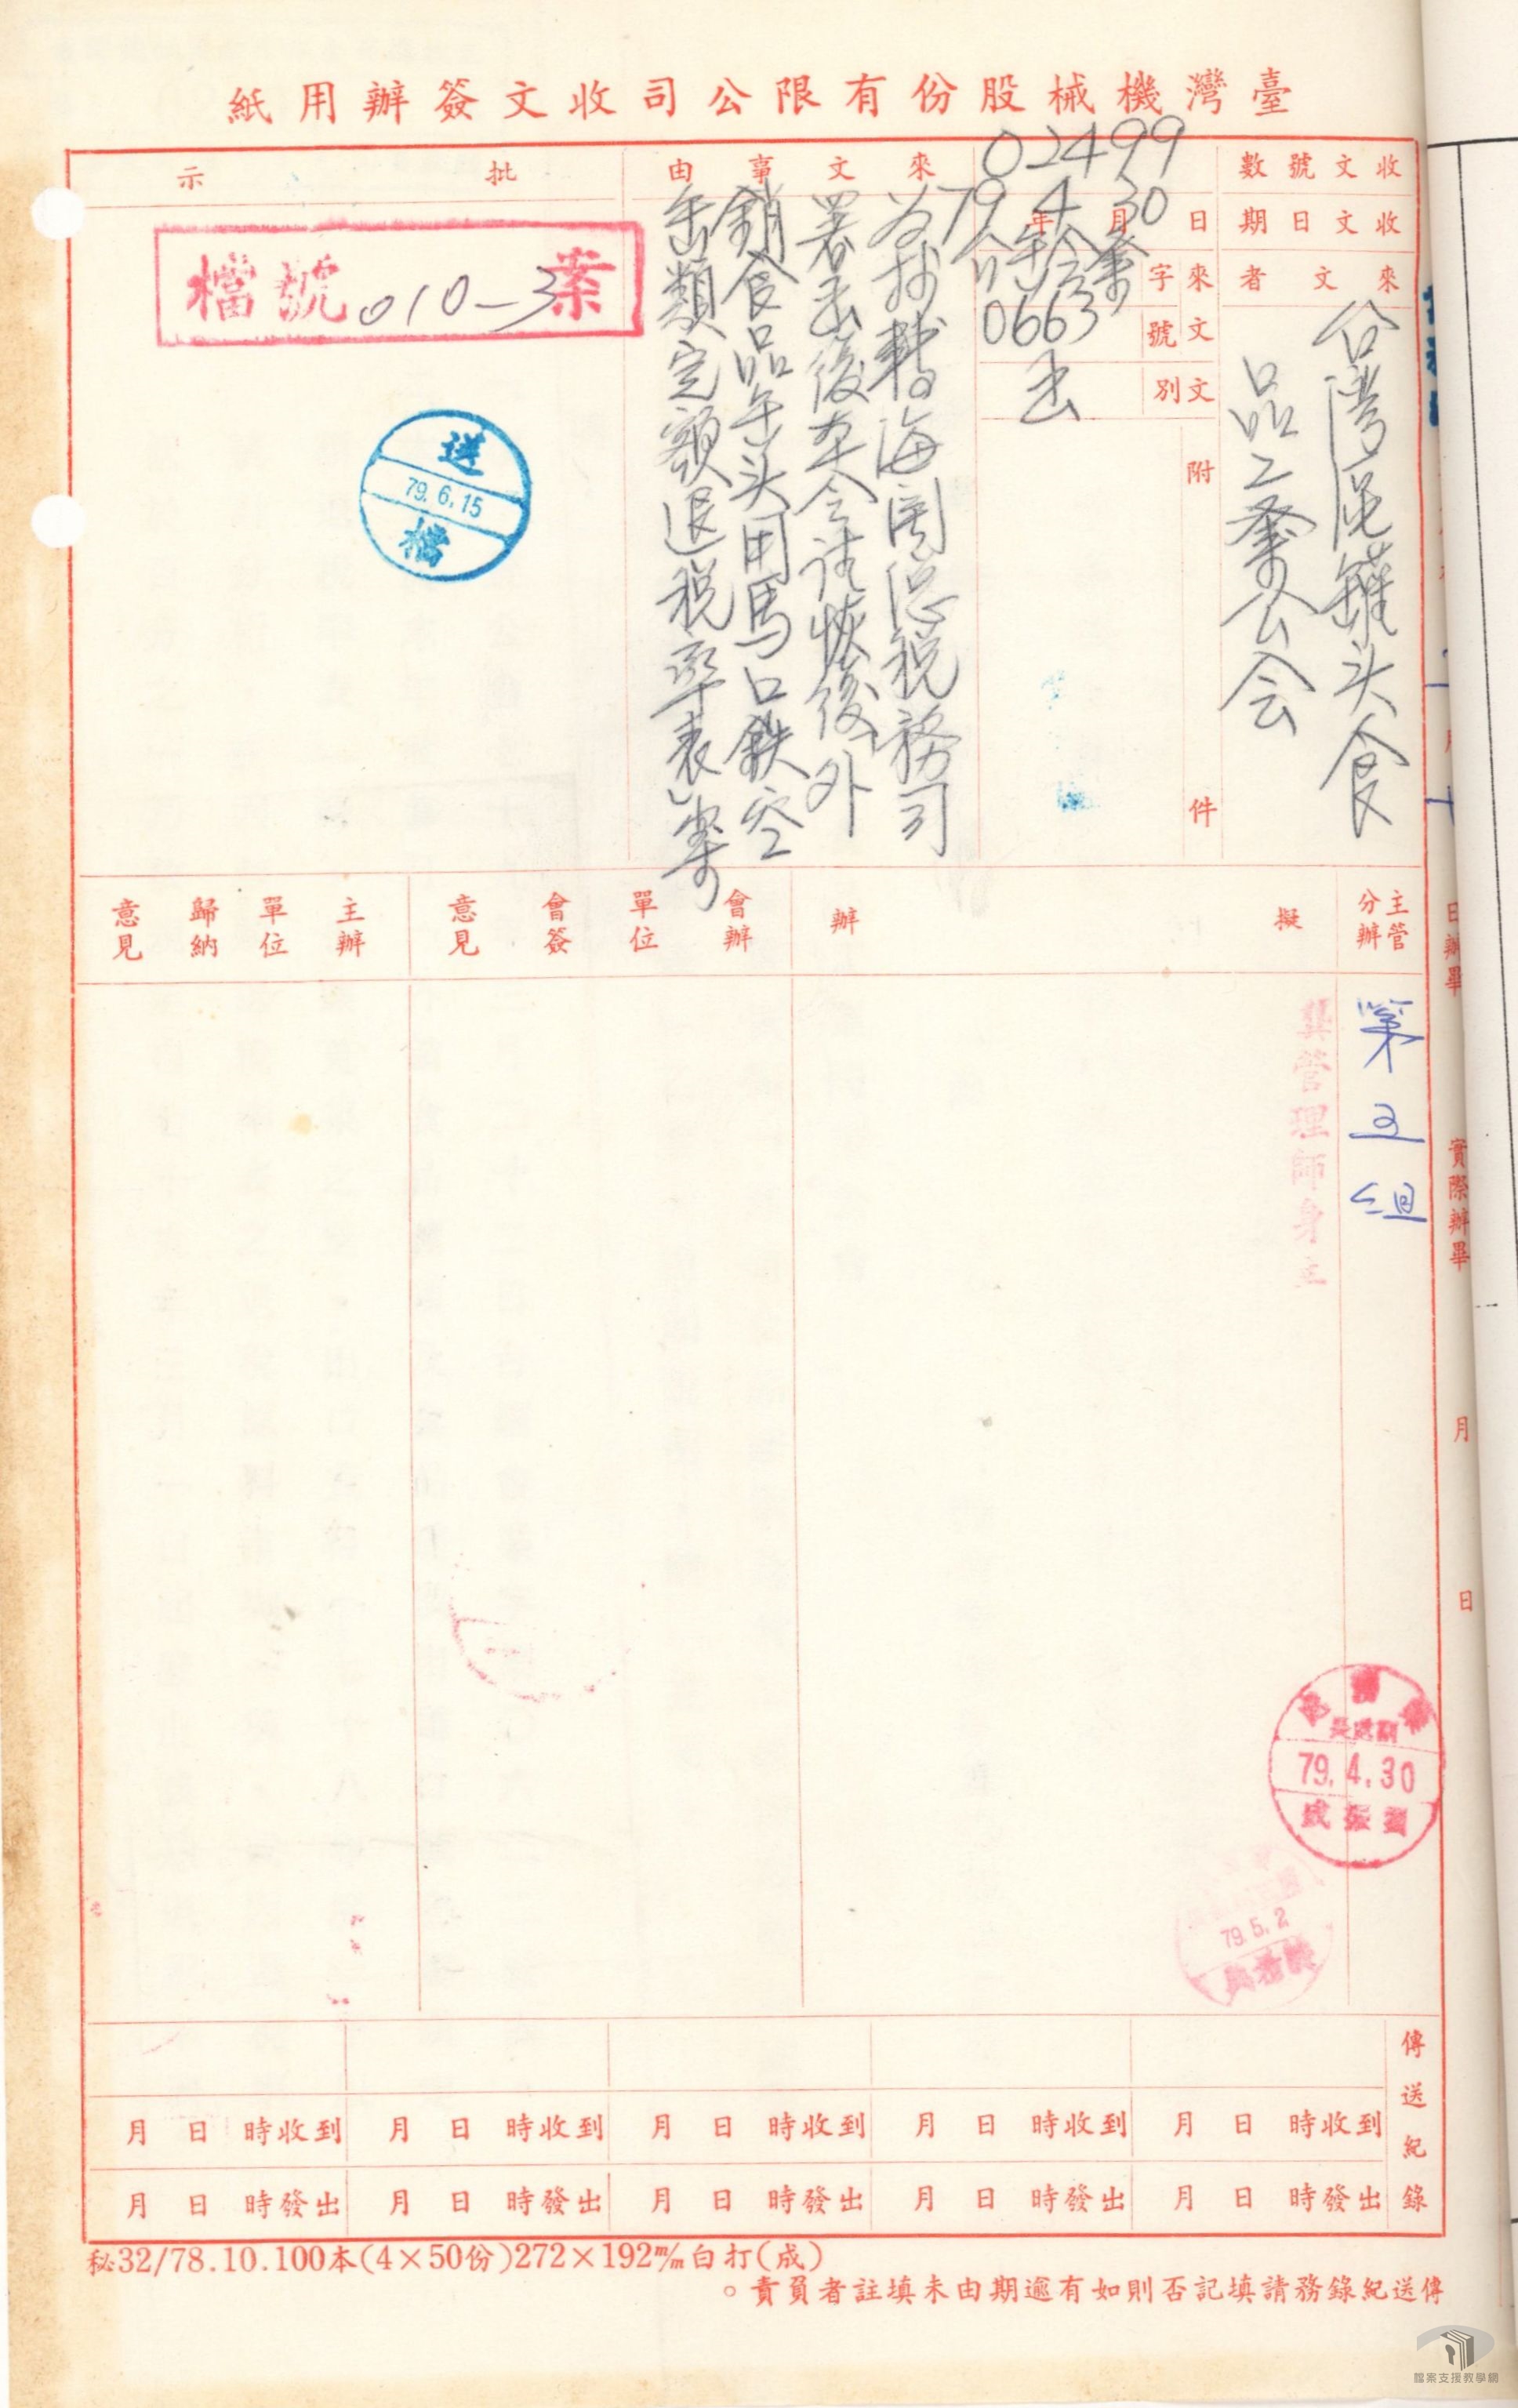 臺灣機械股份有限公司收文簽辦用紙
收文號數
02499
收文日期
79年4月30日
來文者
台灣區罐头食
品工業公会
來文字號
0663
文別
函
附件
來文事由
為抄轉海関總稅務司
署函復本会請恢復外
銷食品缶头用馬口鉄空
缶類定額退稅率表」案
批示
檔號 010-3 案
送檔
79.6.15
主管分辦
擬辦
會辦單位
會簽意見
主辦單位
歸納意見
第五組
管理師身
79.4.30
79.5.2
日辦畢
實際辦畢
月
日
傳送紀錄
月 日 時收到 月 日 時收到 月 日 時收到 月 日 時收到 月 日 時收到
月 日 時發出 月 日 時發出 月 日 時發出 月 日 時發出 月 日 時發出
秘32/78.10.100本(4×50份)272×192m/m白打(成)
傳送紀錄務請填記否則如有逾期由未填註者員責。
檔案支援教學網